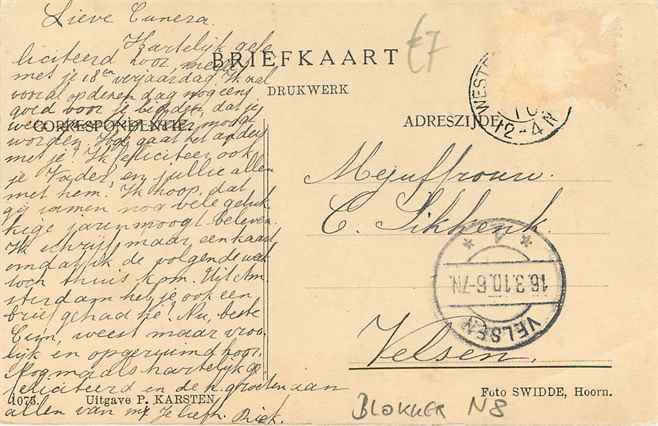 Lieve Cunera.
Hartelijk gefe
liciteerd hoor meid
met je 18er verjaardag. Ik wel
vooral op deze dag nog eens
goed voor je bidden, dat je
weer beter moog
worden. Hoe gaat het anders
met je? Ik feliciteer ook
je Vader, en jullie allen
met hem. Ik hoop, dat
gij samen nog vele geluk
kige jaren moogt beleven.
Ik schrijf maar een kaart
omdat ik de volgende week
toch thuis kom. Uit Am-
sterdam heb je ook een
brief gehad hè! Nu, beste
Cun, weest maar vroo-
lijk en opgeruimd hoor.
Nogmaals hartelijk ge
feliciteerd en de h. groeten aan
allen van mij. Je liefh. Riek.
€7
BRIEFKAART
DRUKWERK
CORRESPONDENTIE
ADRESZIJDE
WEST
10
12-4 N
Mejuffrouw
C. Sikkenk.
Velsen.
* 1 *
16.3.10.6-7N.
VELSEN
1073. Uitgave P. KARSTEN
Foto SWIDDE, Hoorn.
BLOKKER N8